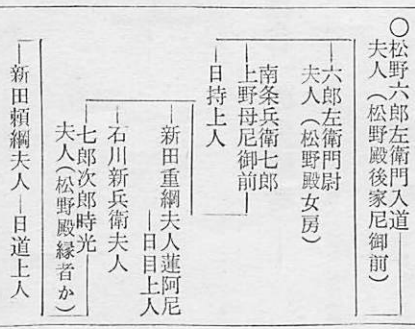 ○松野六郎左衛門入道
夫人（松野殿後家尼御前）
六郎左衛門尉
夫人（松野殿女房）
南条兵衛七郎
上野母尼御前
日持上人
新田重綱夫人蓮阿尼
日目上人
石川新兵衛夫人
七郎次郎時光
夫人（松野殿縁者か）
新田頼綱夫人―日道上人